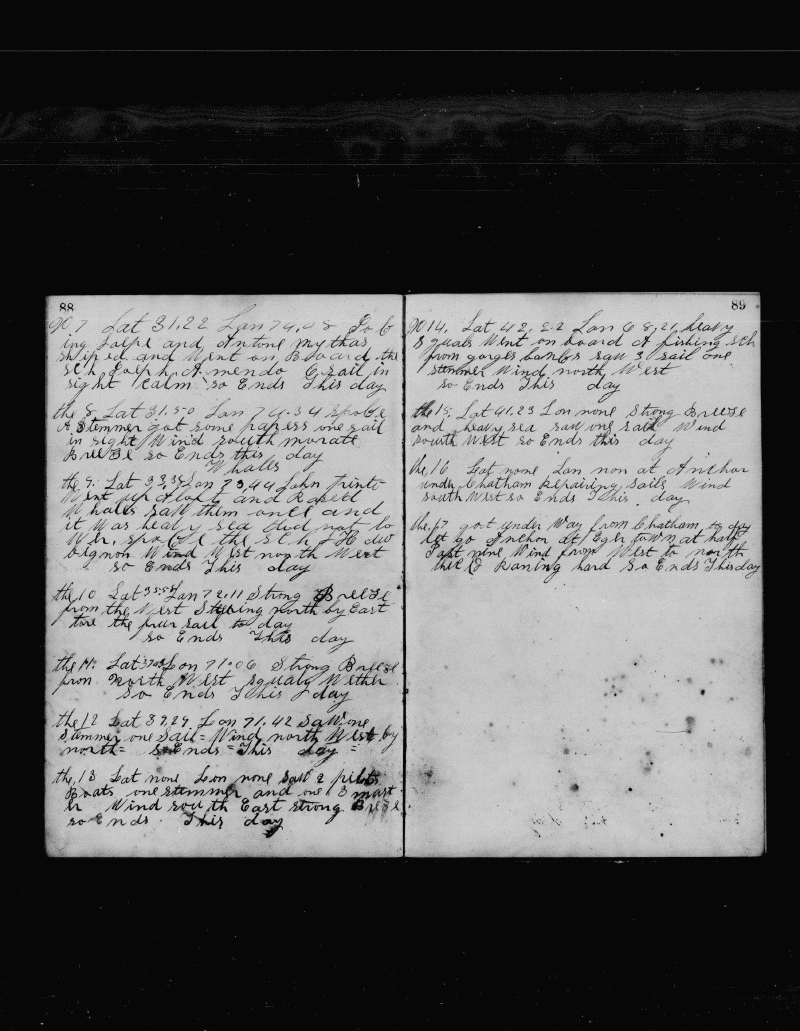 88
7 Lat 31.22 Lon 74.08
ing and Antone
shiped and Went on Board the
Sch A mendo 6 sail in
sight calm so Ends This day
the 8 Lat 31.50 Lon 74.34 spoke
A Stemmer got some papers one sail
in sight Wind south
BreeZe so Ends this day
Whales
the 9. Lat Lon 73,44 John
Went up Aloft and
Whales saw them once and
it Was heavy sea did not lo
Wer, spoke the Sch
Wind West north West
so Ends This day
the 10 Lat 35.54 Lon 72.11 Strong BreeZe
from the West Stering north by East
tore the sail to day
so Ends This day
the 11. Lat Lon 71.06 Strong BreeZe
from North West squaly Wether
So Ends This day
the 12 Lat 39.29, Lon 71.42 SaW one
stemmer one Sail= Wind north West by
north= so Ends=This day =
the, 13 Lat none Lon none SaW 2 pilots
Boats one stemmer and one 3 mast
er Wind south East strong BreeZe
so Ends This day
89
14. Lat 42, 22 Lon 68,21 heavy
Squals Went on board A fishing sch
from banks saw 3 sail one
stemmer Wind north West
so Ends This day
the 15. Lat 41.23 Lon none Strong BreeZe
and heavy sea saw one sail Wind
south West so Ends this day
the 16 Lat none Lon non at Anchor
under Chatham Repairing sails Wind
south West so Ends This day
the 17 got under Way from Chatham, to day
let go Anchor at town at half
Past nine Wind from West to north
Raning hard So Ends This day